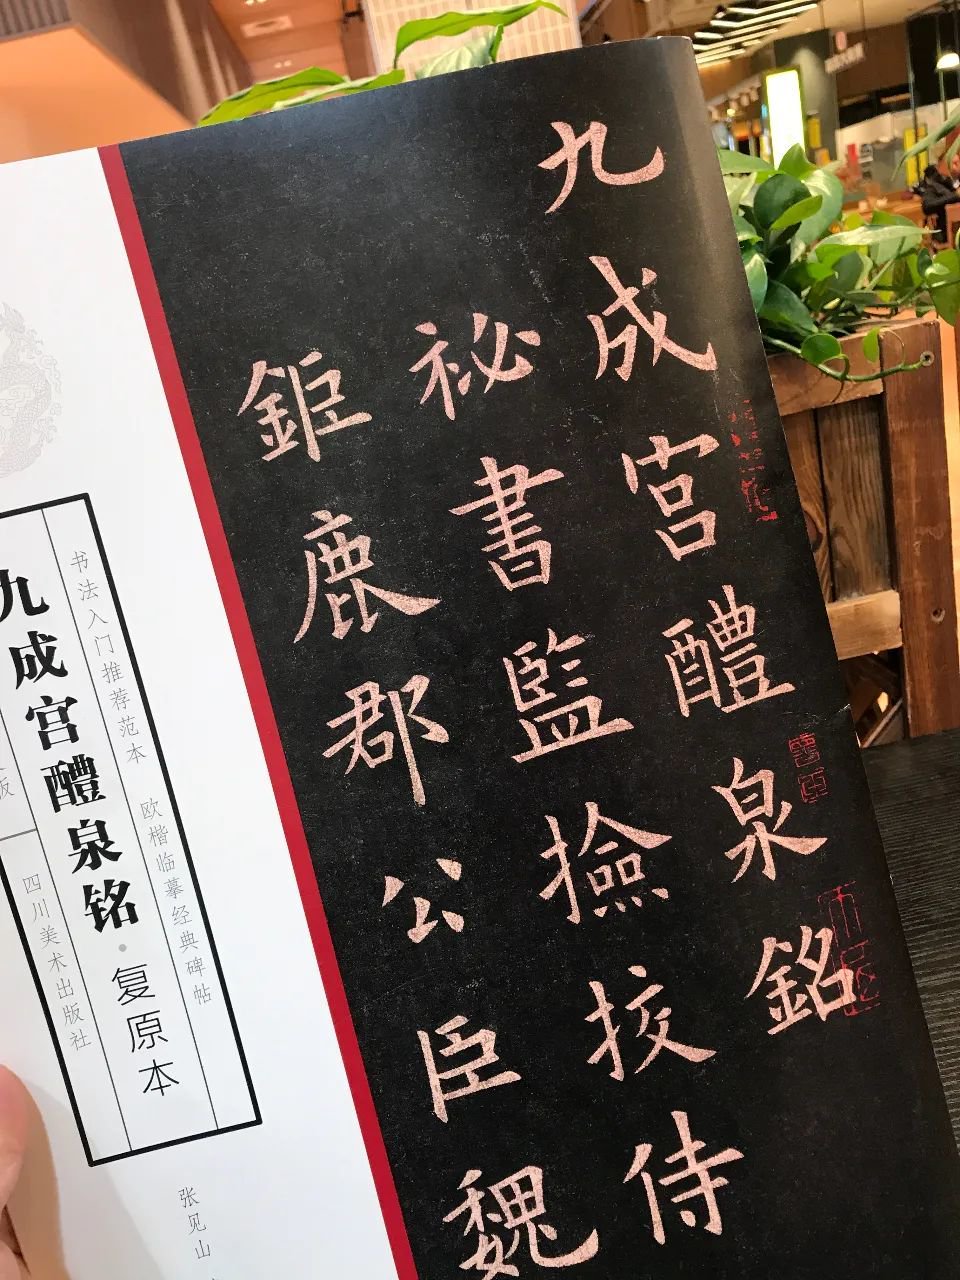 九成宮醴泉銘
祕書監撿挍侍
鉅鹿郡公臣魏
书法入门推荐范本 欧楷临摹经典碑帖
九成宫醴泉铭·复原本
四川美术出版社
张见山